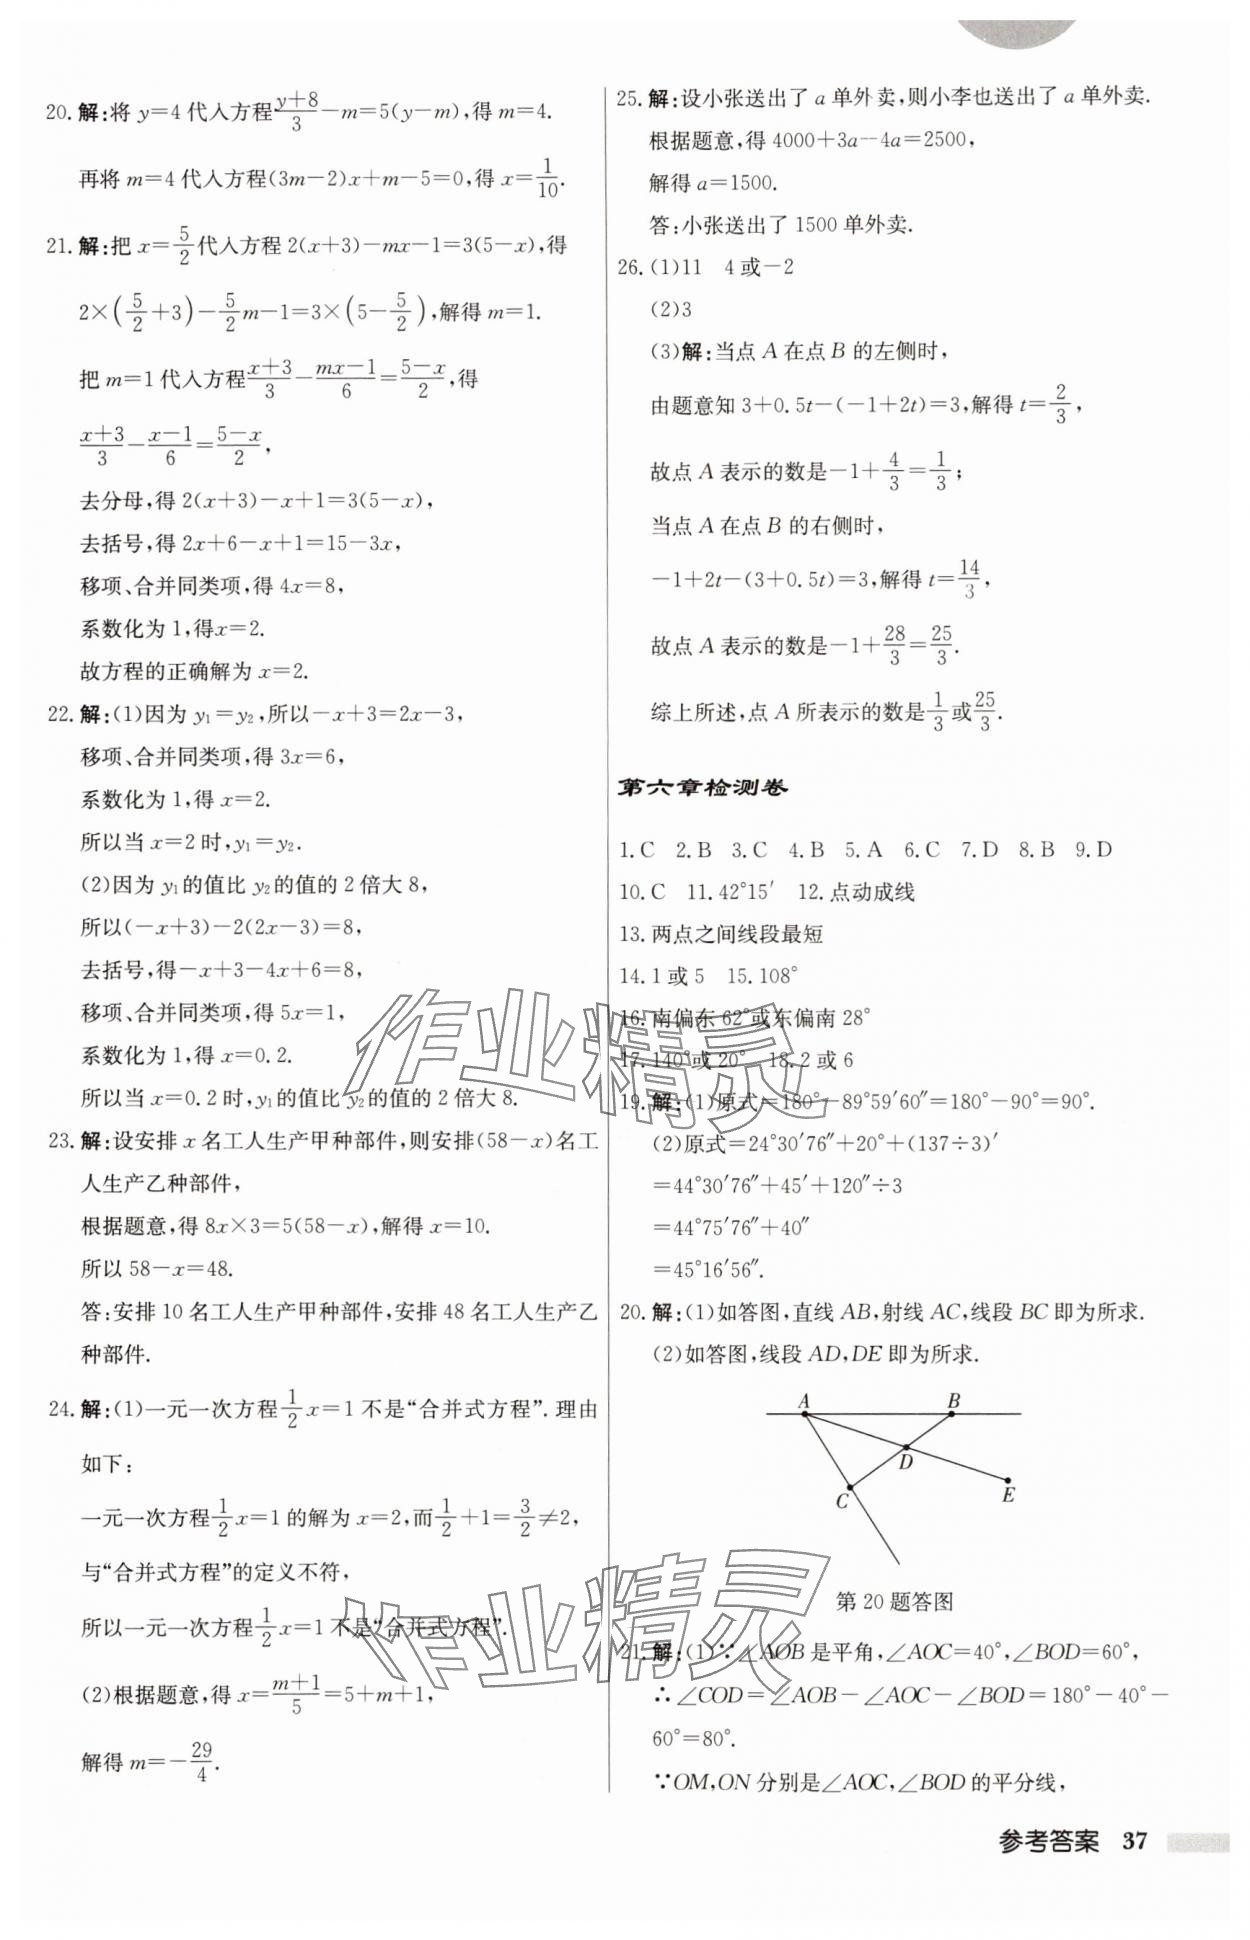 20. 解:将 y=4 代入方程(y+8)/3−m=5(y−m),得 m=4.
再将 m=4 代入方程(3m−2)x+m−5=0,得 x=1/10.
21. 解:把 x=5/2代入方程 2(x+3)−mx−1=3(5−x),得
2×(5/2+3)−5/2m−1=3×(5−5/2),解得 m=1.
把 m=1 代入方程(x+3)/3−(mx−1)/6=(5−x)/2,得
(x+3)/3−(x−1)/6=(5−x)/2,
去分母,得 2(x+3)−x+1=3(5−x),
去括号,得 2x+6−x+1=15−3x,
移项、合并同类项,得 4x=8,
系数化为 1,得x=2.
故方程的正确解为 x=2.
22. 解:(1)因为 y₁=y₂,所以−x+3=2x−3,
移项、合并同类项,得 3x=6,
系数化为 1,得 x=2.
所以当 x=2 时,y₁=y₂.
(2)因为 y₁的值比 y₂的值的 2 倍大 8,
所以(−x+3)−2(2x−3)=8,
去括号,得−x+3−4x+6=8,
移项、合并同类项,得 5x=1,
系数化为 1,得 x=0.2.
所以当 x=0.2 时,y₁的值比 y₂的值的 2 倍大 8.
23. 解:设安排 x 名工人生产甲种部件,则安排(58−x)名工
人生产乙种部件,
根据题意,得 8x×3=5(58−x),解得 x=10.
所以 58−x=48.
答:安排 10 名工人生产甲种部件,安排 48 名工人生产乙
种部件.
24. 解:(1)一元一次方程1/2x=1 不是“合并式方程”.理由
如下:
一元一次方程1/2x=1 的解为 x=2,而1/2+1=3/2≠2,
与“合并式方程”的定义不符,
所以一元一次方程1/2x=1 不是“合并式方程”.
(2)根据题意,得 x=(m+1)/5=5+m+1,
解得 m=−29/4.
25. 解:设小张送出了 a 单外卖,则小李也送出了 a 单外卖.
根据题意,得 4000+3a−4a=2500,
解得 a=1500.
答:小张送出了 1500 单外卖.
26. (1)11 4 或−2
(2)3
(3)解:当点 A 在点 B 的左侧时,
由题意知 3+0.5t−(−1+2t)=3,解得 t=2/3,
故点 A 表示的数是−1+4/3=1/3;
当点 A 在点 B 的右侧时,
−1+2t−(3+0.5t)=3,解得 t=14/3,
故点 A 表示的数是−1+28/3=25/3.
综上所述,点 A 所表示的数是1/3或25/3.
第六章检测卷
1. C 2. B 3. C 4. B 5. A 6. C 7. D 8. B 9. D
10. C 11. 42°15′ 12. 点动成线
13. 两点之间线段最短
14. 1 或 5 15. 108°
16. 南偏东 62°或东偏南 28°
17. 140°或 20° 18. 2 或 6
19. 解:(1)原式=180°−89°59′60″=180°−90°=90°.
(2)原式=24°30′76″+20°+(137÷3)′
=44°30′76″+45′+120″÷3
=44°75′76″+40″
=45°16′56″.
20. 解:(1)如答图,直线 AB,射线 AC,线段 BC 即为所求.
(2)如答图,线段 AD,DE 即为所求.
A B
D
C E
第 20 题答图
21. 解:(1)∵∠AOB 是平角,∠AOC=40°,∠BOD=60°,
∴∠COD=∠AOB−∠AOC−∠BOD=180°−40°−
60°=80°.
∵OM,ON 分别是∠AOC,∠BOD 的平分线,
参考答案 37
作业精灵
作业精灵